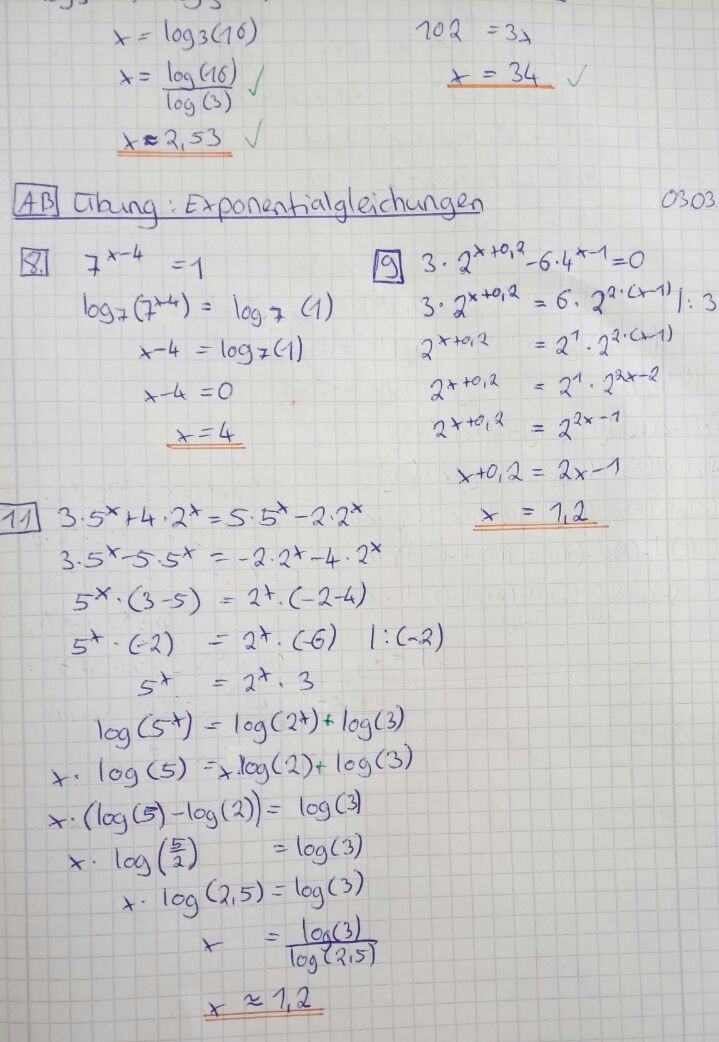 x = log₃(16)
x = log(16)/log(3) ✓
x ≈ 2,53 ✓
102 = 3x
x = 34 ✓
AB Übung: Exponentialgleichungen 0303
8. 7^(x-4) = 1
log₇(7^(x-4)) = log₇(1)
x-4 = log₇(1)
x-4 = 0
x = 4
9 3·2^(x+0,2) - 6·4^(x-1) = 0
3·2^(x+0,2) = 6·2^(2·(x-1)) |:3
2^(x+0,2) = 2^1·2^(2·(x-1))
2^(x+0,2) = 2^1·2^(2x-2)
2^(x+0,2) = 2^(2x-1)
x+0,2 = 2x-1
x = 1,2
11 3·5^x + 4·2^x = 5·5^x - 2·2^x
3·5^x - 5·5^x = -2·2^x - 4·2^x
5^x·(3-5) = 2^x·(-2-4)
5^x·(-2) = 2^x·(-6) |:(-2)
5^x = 2^x·3
log(5^x) = log(2^x) + log(3)
x·log(5) = x·log(2) + log(3)
x·(log(5)-log(2)) = log(3)
x·log(5/2) = log(3)
x·log(2,5) = log(3)
x = log(3)/log(2,5)
x ≈ 1,2